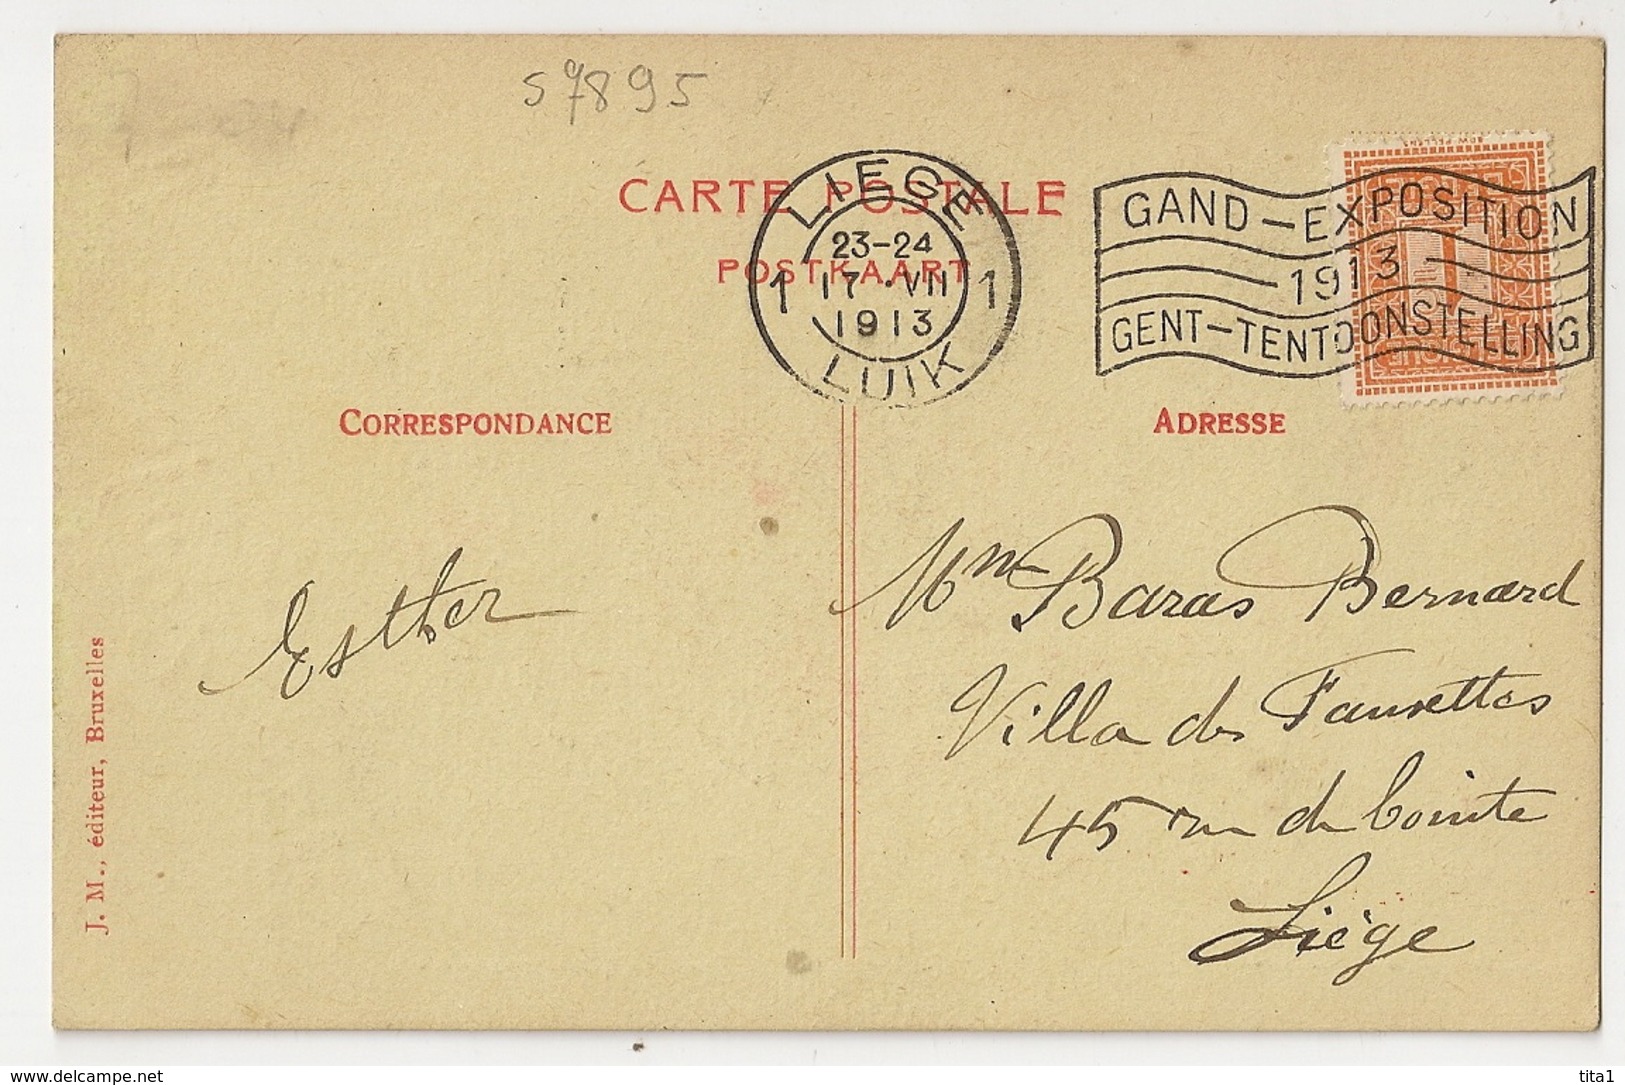 S7895
CARTE POSTALE
POSTKAART
LIEGE
23-24
1 17 · VII 1
1913
LUIK
GAND - EXPOSITION
1913
GENT - TENTOONSTELLING
CORRESPONDANCE
ADRESSE
Esther
Mr Baras Bernard
Villa des Fauvettes
45 rue de Cointe
Liège
J. M., éditeur, Bruxelles
delcampe.net
tita1